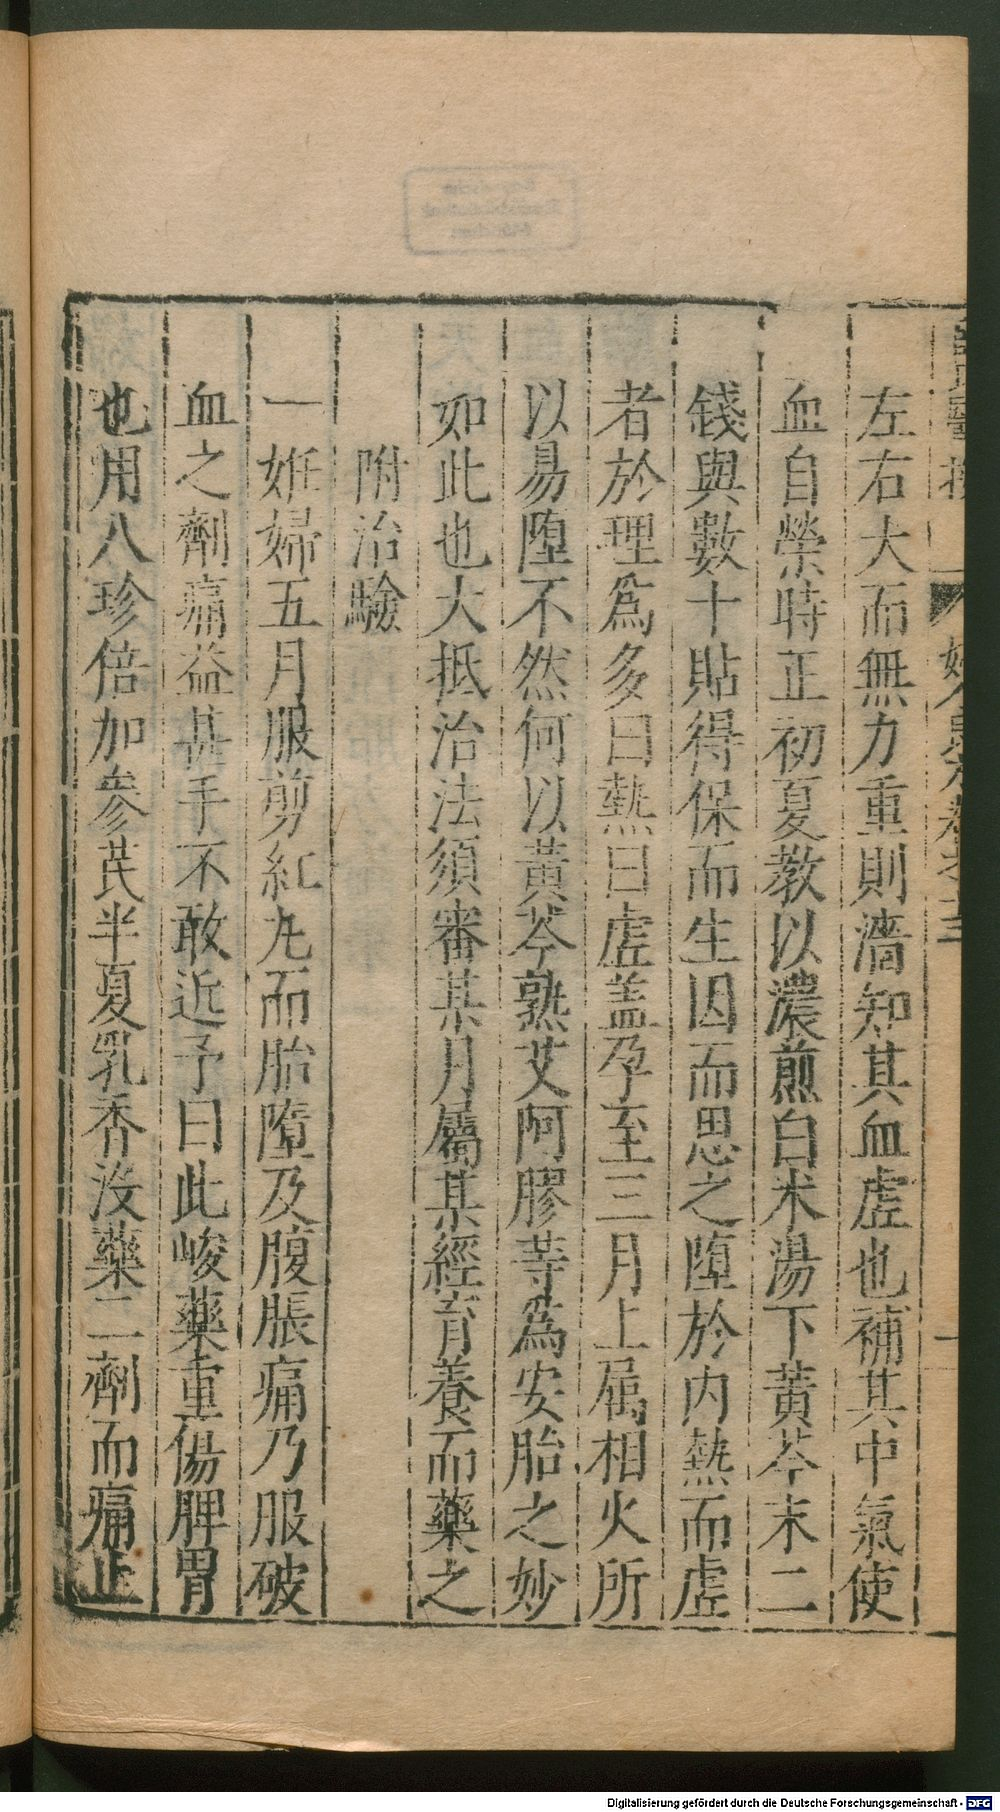 左右大而無力重則濇知其血虚也補其中氣使
血自榮時正初夏教以濃煎白米湯下黃芩末二
錢與數十貼得保而生因而思之墮於内熱而虚
者於理為多曰熱曰虚盖孕至三月上属相火所
以易墮不然何以黃芩熟艾阿膠䓁為安胎之妙
如此也大抵治法須審某月屬某經育養而藥之
附治驗
一姙婦五月服剪紅丸而胎墮及腹脹痛乃服破
血之劑痛益甚手不敢近予曰此峻藥重傷脾胃
也用八珍倍加參芪半夏乳香没藥二劑而痛止
Digitalisierung gefördert durch die Deutsche Forschungsgemeinschaft - DFG